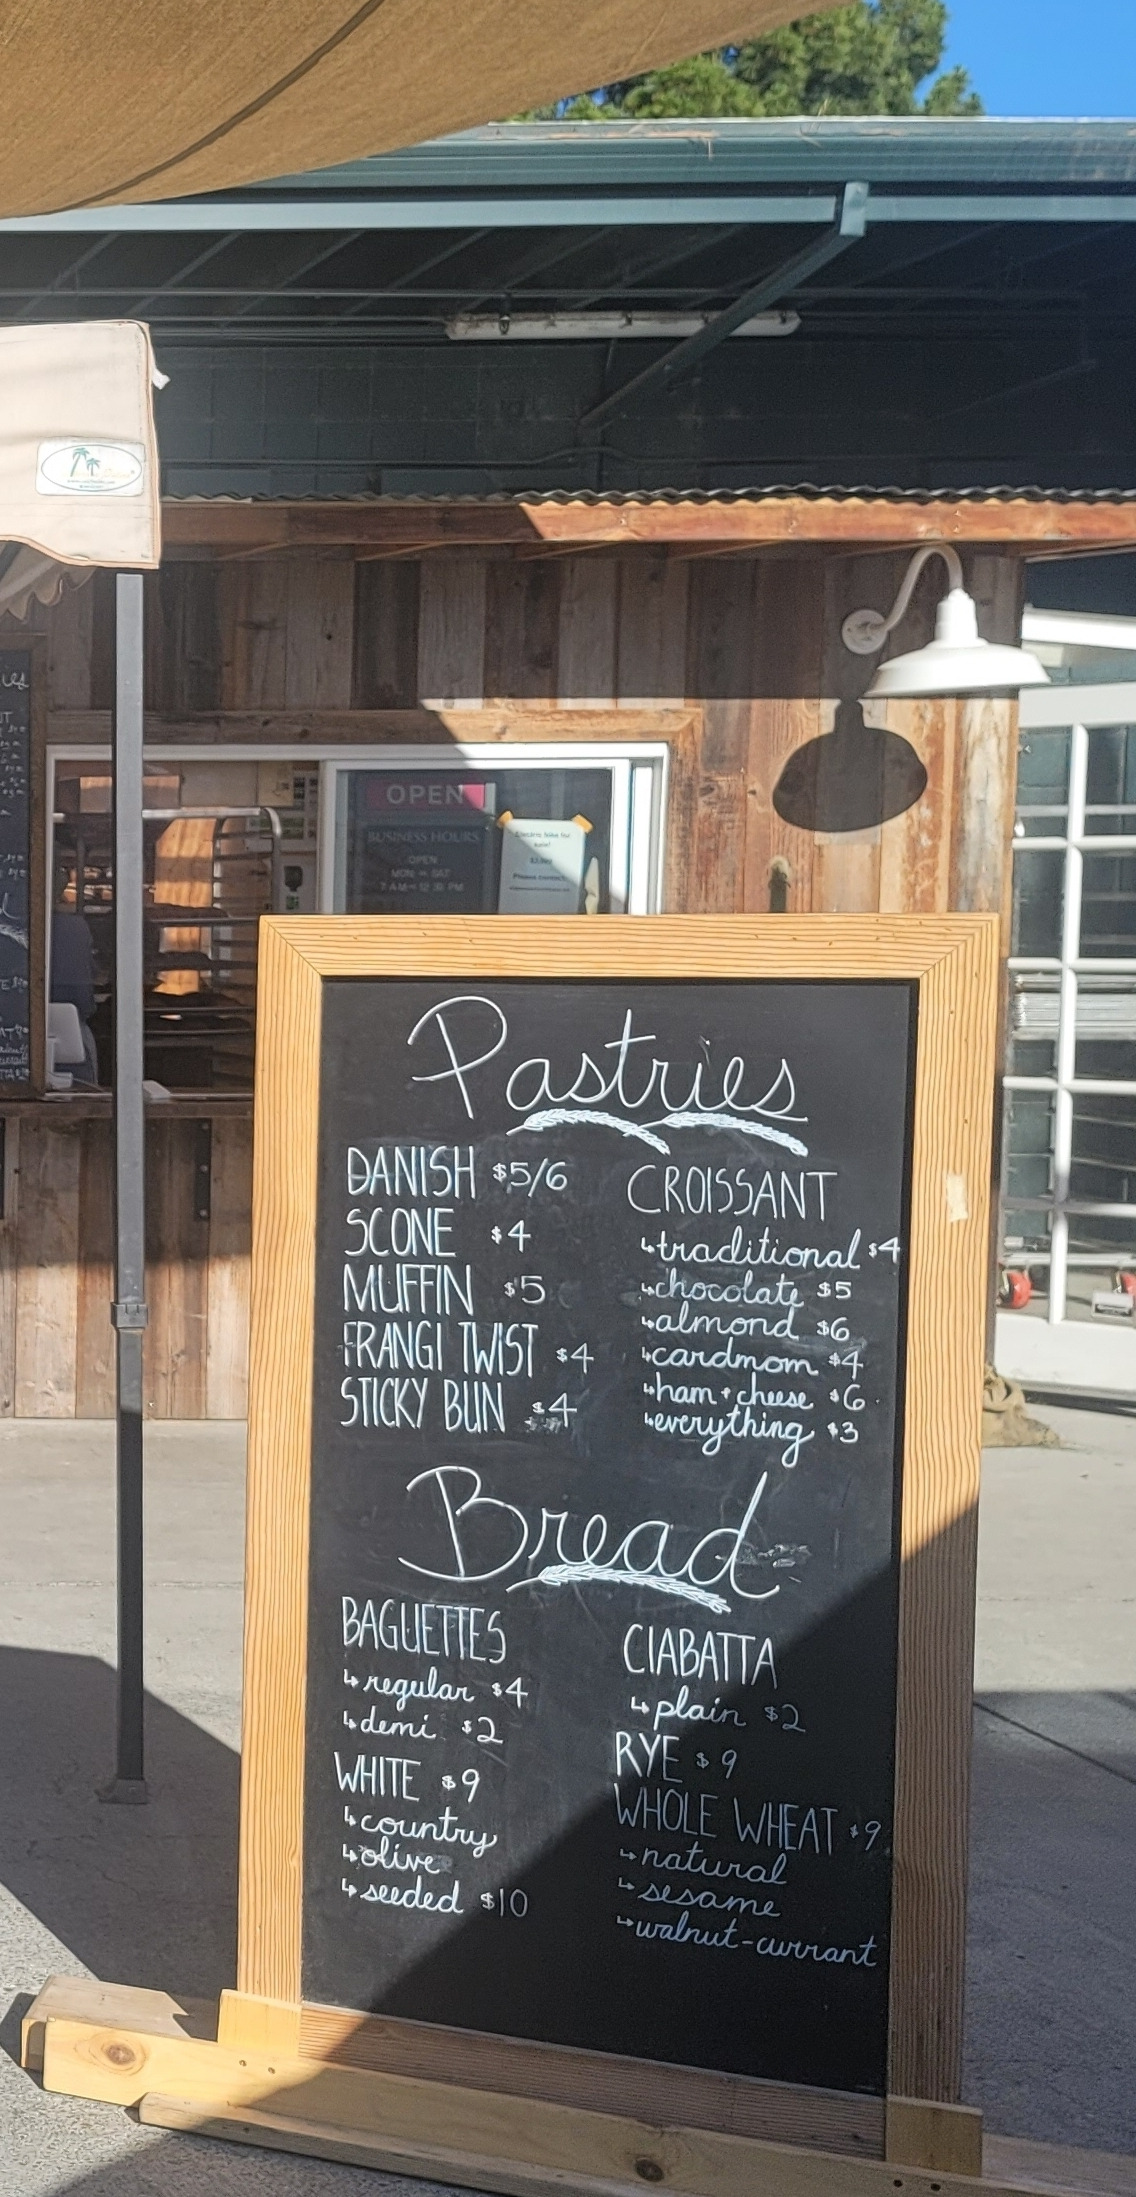 OPEN
BUSINESS HOURS
OPEN
MON - SAT
7 AM - 12:30 PM
Electric bike for
sale!
Please contact:
Pastries
DANISH $5/6
SCONE $4
MUFFIN $5
FRANGI TWIST $4
STICKY BUN $4
CROISSANT
↳traditional $4
↳chocolate $5
↳almond $6
↳cardmom $4
↳ham + cheese $6
↳everything $3
Bread
BAGUETTES
↳regular $4
↳demi $2
WHITE $9
↳country
↳olive
↳seeded $10
CIABATTA
↳plain $2
RYE $9
WHOLE WHEAT $9
↳natural
↳sesame
↳walnut-currant